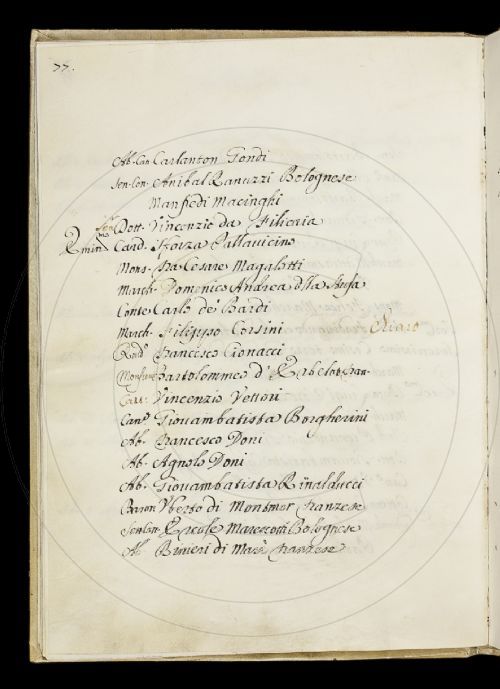 77.
Ab. Can. Carlanton Gondi
Sen. Con. Anibal Ranuzzi Bolognese
Manfredi Macinghi
Sen. Dott. Vincenzio da Filicaia
Emin. Card. Sforza Pallavicino
Mons. Cesare Magalotti
March. Domenico Andrea dlla Stufa
Conte Carlo de' Bardi
March. Filippo Corsini Chiaro
Francesco Cionacci
Monsieur Bartolommeo d' Erbelot Fran.
Cav. Vincenzio Vettori
Cano. Giouambatista Borgherini
Ab. Francesco Doni
Ab. Agnolo Doni
Ab. Giouambatista Rinalducci
Baron Vberto di Montmor Franzese
Sen. Con. Ercole Marescotti Bolognese
Ab. di Franzese